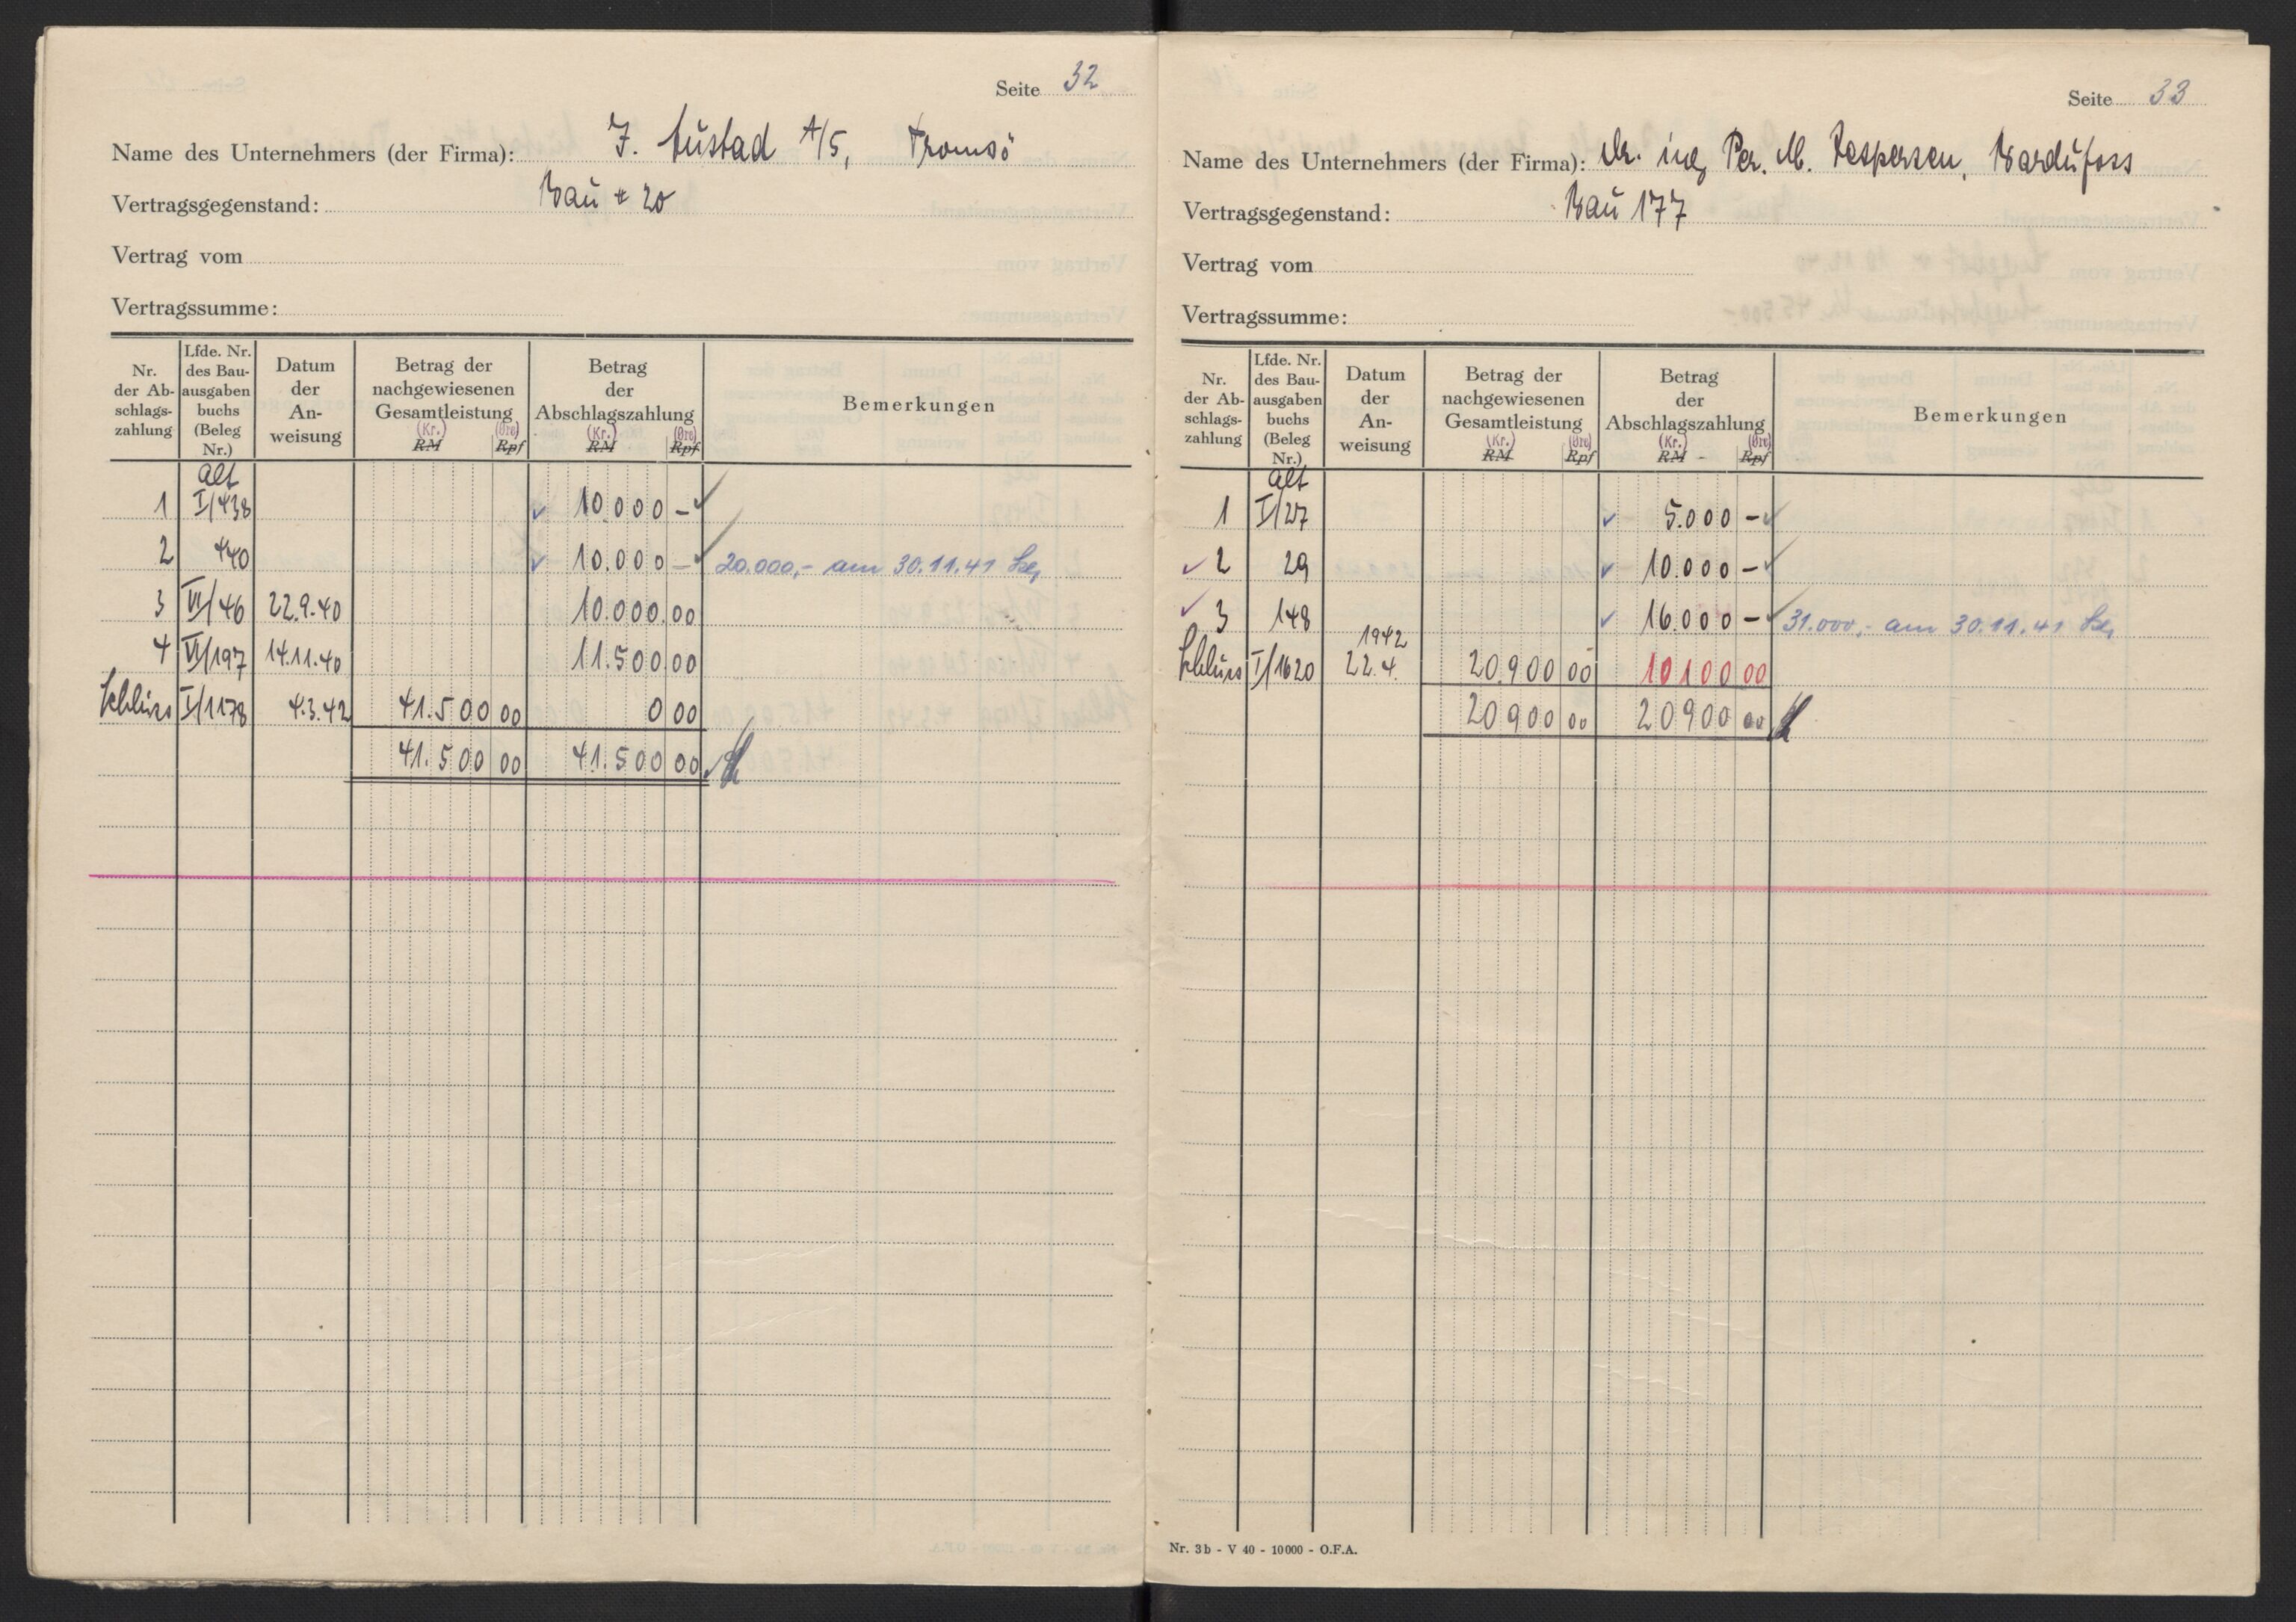 Seite 32
Name des Unternehmers (der Firma): J. Austad A/S, Tromsö
Vertragsgegenstand: Bau 420
Vertrag vom
Vertragssumme:
Nr. der Abschlagszahlung | Lfde. Nr. des Bauausgabenbuchs (Beleg Nr.) | Datum der Anweisung | Betrag der nachgewiesenen Gesamtleistung (Kr.) RM (Øre) Rpf | Betrag der Abschlagszahlung (Kr.) RM (Øre) Rpf | Bemerkungen
Alt
1 I/438 10.000 –
2 440 10.000 – 20.000,- am 30.11.41
3 VI/46 22.9.40 10.000.00
4 VI/197 14.11.40 11.500.00
Schluss I/1178 4.3.42 41.500 00 0 00
41.500 00 41.500 00
Seite 33
Name des Unternehmers (der Firma): Dr. ing. Per. M. Jespersen, Bardufoss
Vertragsgegenstand: Bau 177
Vertrag vom
Vertragssumme:
Nr. der Abschlagszahlung | Lfde. Nr. des Bauausgabenbuchs (Beleg Nr.) | Datum der Anweisung | Betrag der nachgewiesenen Gesamtleistung (Kr.) RM (Øre) Rpf | Betrag der Abschlagszahlung (Kr.) RM (Øre) Rpf | Bemerkungen
Alt
1 I/27 5.000 –
2 29 10.000 –
3 148 16.000 – 31.000,- am 30.11.41
1942
Schluss I/1620 22.4. 20.900 00 10100 00
20900 00 20900 00
Nr. 3b - V 40 - 10000 - O.F.A.